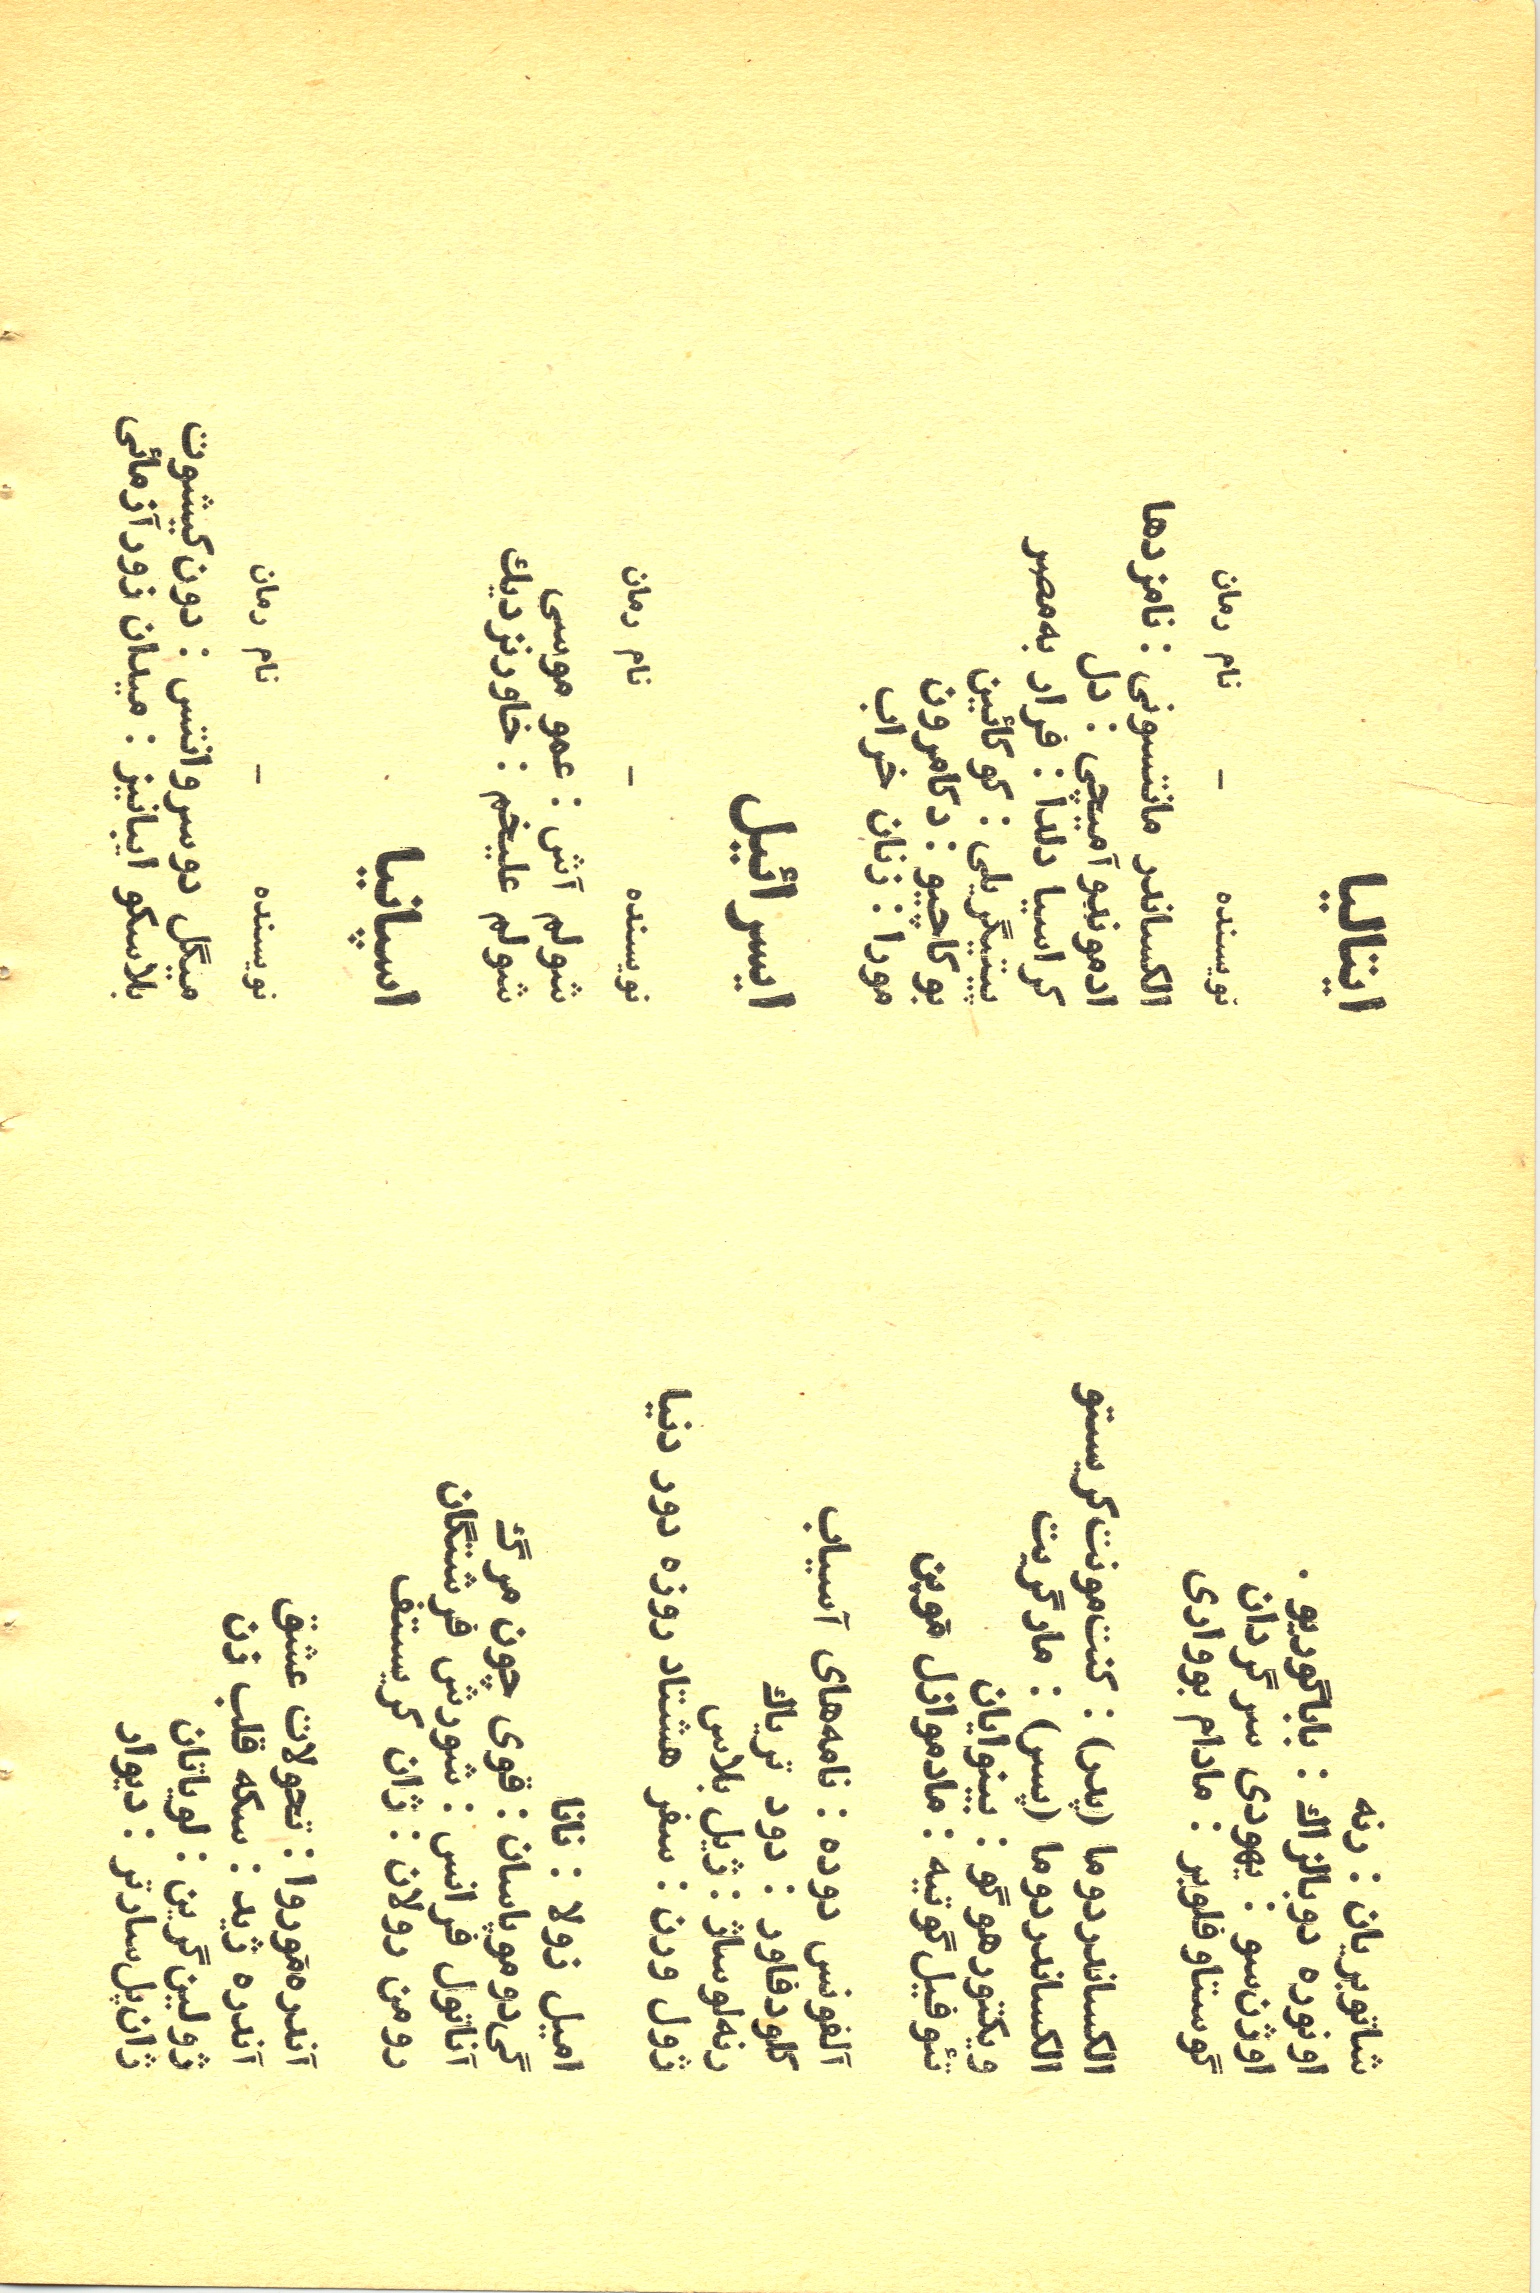 شاتوبریان : رنه
اونوره دوبالزاك : باباگوریو .
اوژن‌سو : یهودی سرگردان
گوستاوفلوبر : مادام بوواری
الکساندردوما (پدر) : کنت‌مونت‌کریستو
الکساندردوما (پسر) : مارگریت
ویکتورهوگو : بینوایان
تئوفیل‌گوتیه : مادموازل موپن
آلفونس دوده : نامه‌های آسیاب
کلودفاور : دود تریاك
رنه‌لوساژ : ژیل بلاس
ژول ورن : سفر هشتاد روزه دور دنیا
امیل زولا : نانا
گی‌دوموپاسان : قوی چون مرگ
آناتول فرانس : شورش فرشتگان
رومن رولان : ژان کریستف
آندره‌موروا : تحولات عشق
آندره ژید : سکه قلب زن
ژولین‌گرین : لویاتان
ژان‌پل‌سارتر : دیوار
ایتالیا
نویسنده - نام رمان
الکساندر مانتسونی : نامزدها
ادموندوآمیچی : دل
کراسیا دلدا : فرار به‌مصر
پیتیگریلی : کوکائین
بوکاچیو : دکامرون
مودا : زنان خراب
ایسرائیل
نویسنده - نام رمان
شولم آش : عمو موسی
شولم علیخم : خاورنزدیك
اسپانیا
نویسنده - نام رمان
میگل دوسروانتس : دون‌کیشوت
بلاسکو ایبانیز : میدان زورآزمائی